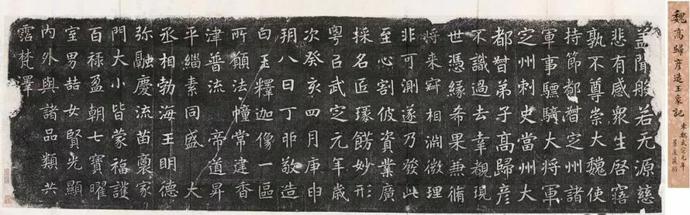 魏高歸彥造玉象記
東魏武定元年
盖聞般若无源慈
悲有感衆生啓寤
孰不尊崇大魏使
持節都督定州諸
軍事驃騎大將軍
定州刺史當州大
都督弟子高歸彥
不識過去幸覩現
世憑緣希果兼脩
將來竊相淵微理
非可測遂乃發此
至心割彼資業廣
採名匠琢餝妙形
粵以武定元年歲
次癸亥四月庚申
朔八日丁卯敬造
白玉釋迦像一區
所願法幢常建道
津普流 帝道昇
平緇素同盛 大
丞相勃海王明德
弥融慶流苗裔家
門大小皆蒙福護
百禄盈朝七寶曜
室男喆女賢光顯
内外與諸品類共
霑梵澤